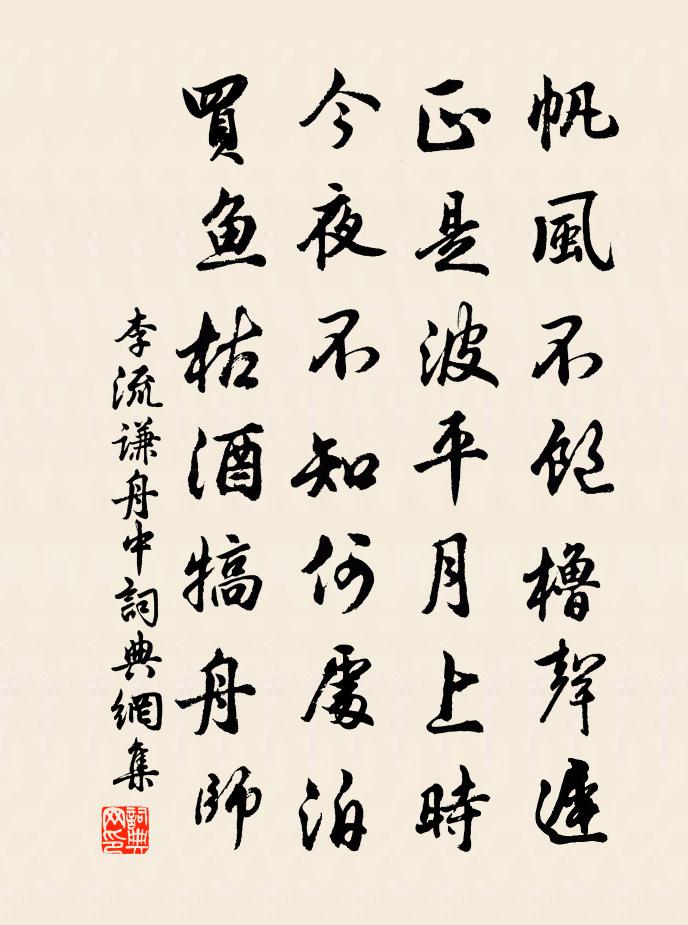 帆風不飽櫓聲遲
正是波平月上時
今夜不知何處泊
買魚枯酒犒舟師
李流谦舟中詞典網集
詞典网印